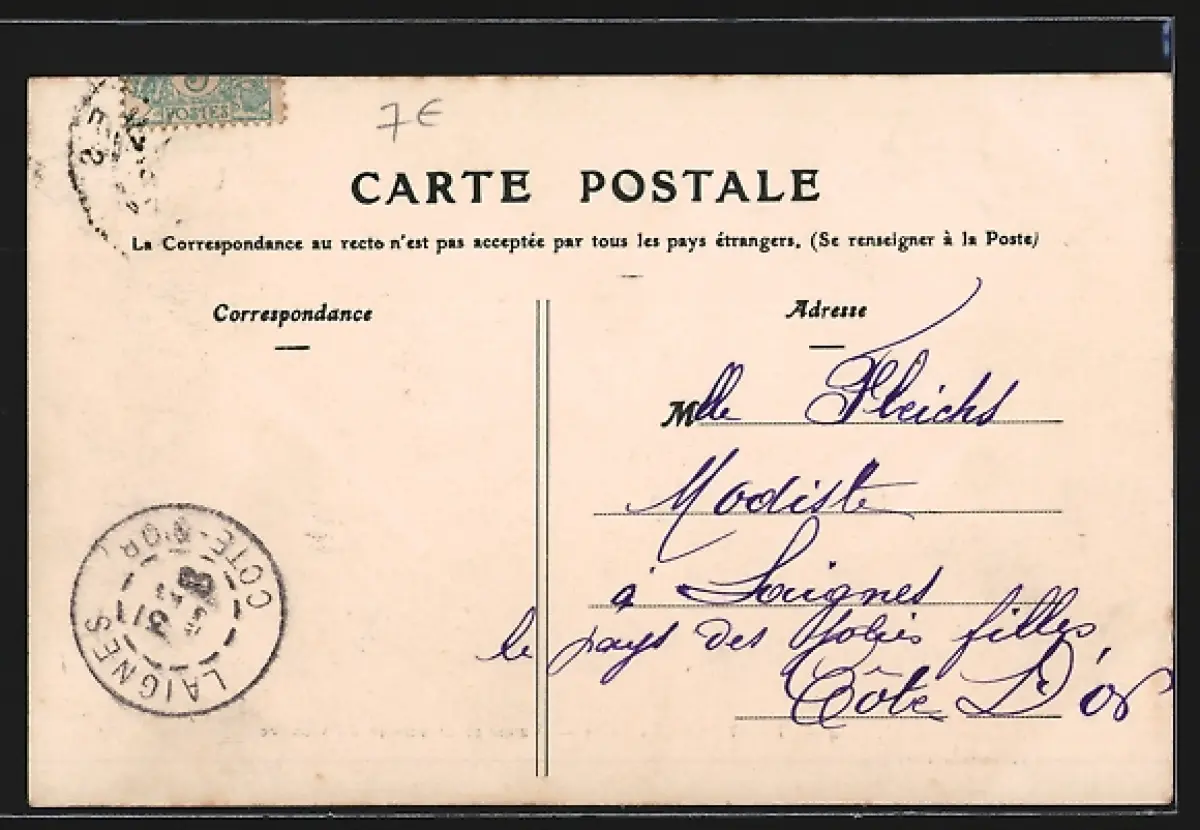 5
POSTES
7 €
CARTE POSTALE
La Correspondance au recto n'est pas acceptée par tous les pays étrangers. (Se renseigner à la Poste)
Correspondance
Adresse
Mlle Fleichs
Modiste
à Laignes
le pays des Jolies filles,
Côte D'or
LAIGNES
COTE-D'OR